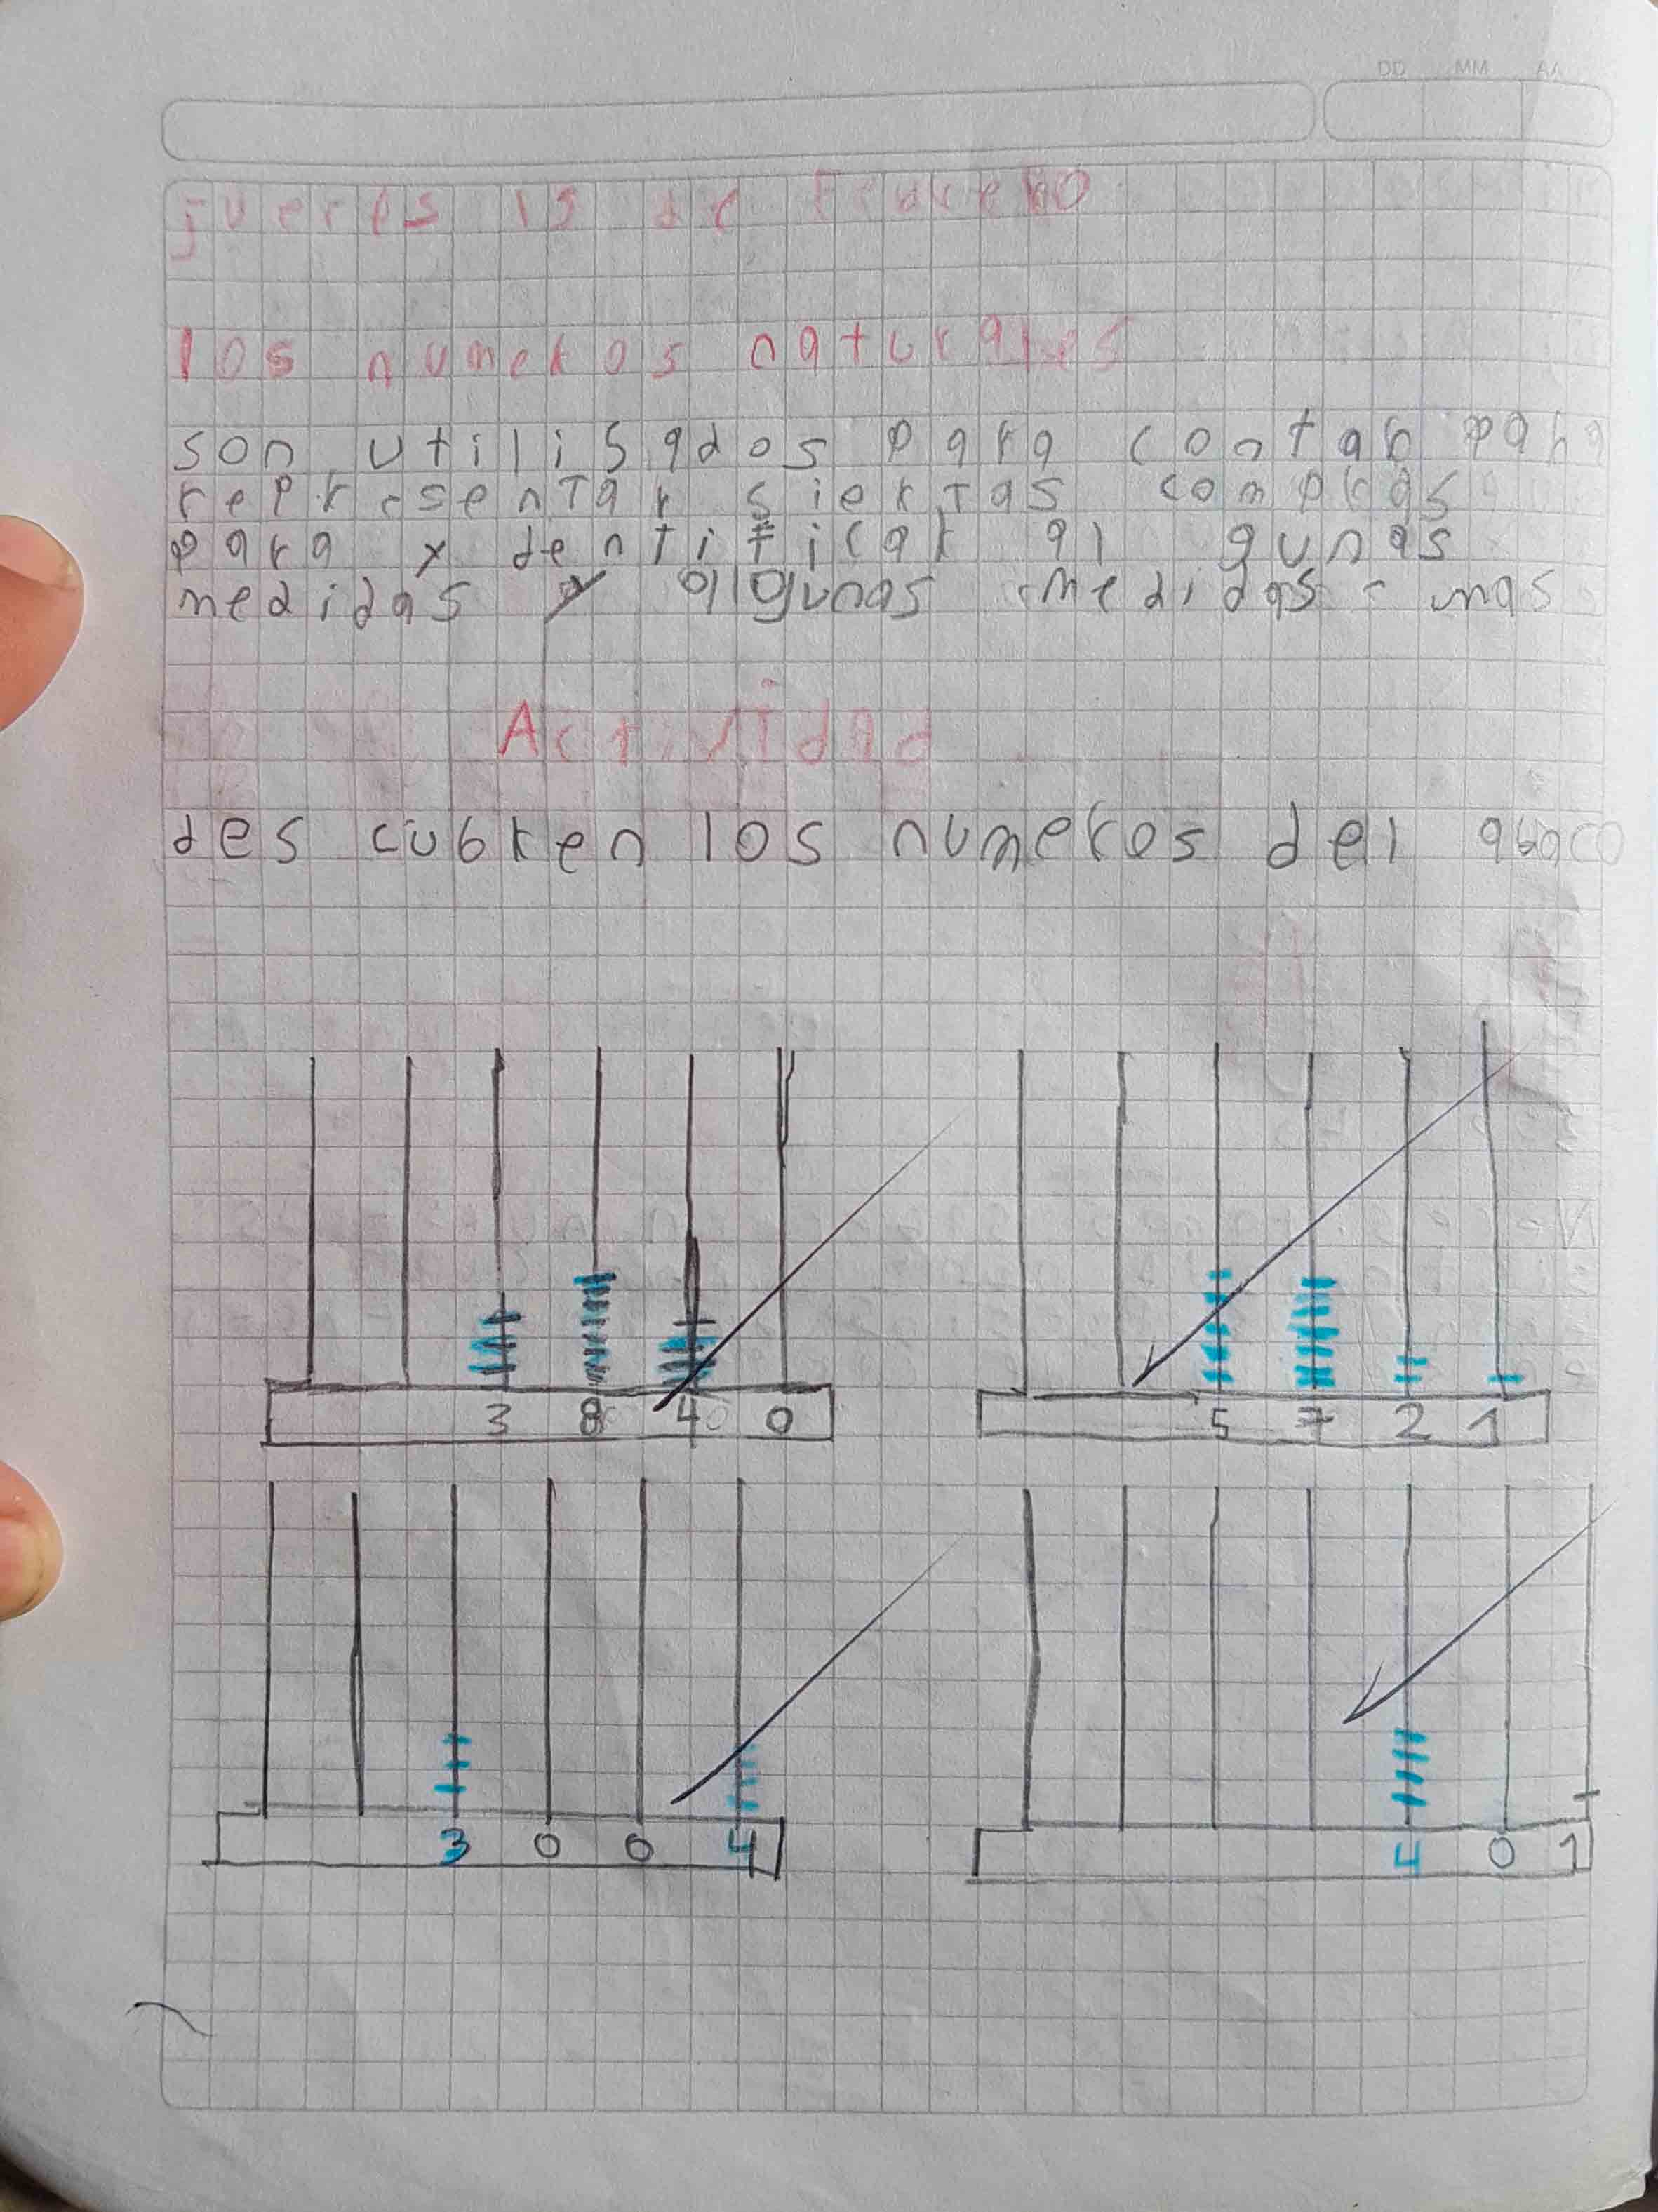 DD MM AA
jueves 19 de Febrero
los numeros naturales
son utilisados para contar para
representar siertas compras
para y dentificar al gunas
medidas y algunas medidas - unas
Actividad
des cubren los numeros del abaco
3 8 4 0
5 7 2 1
3 0 0 4
4 0 1